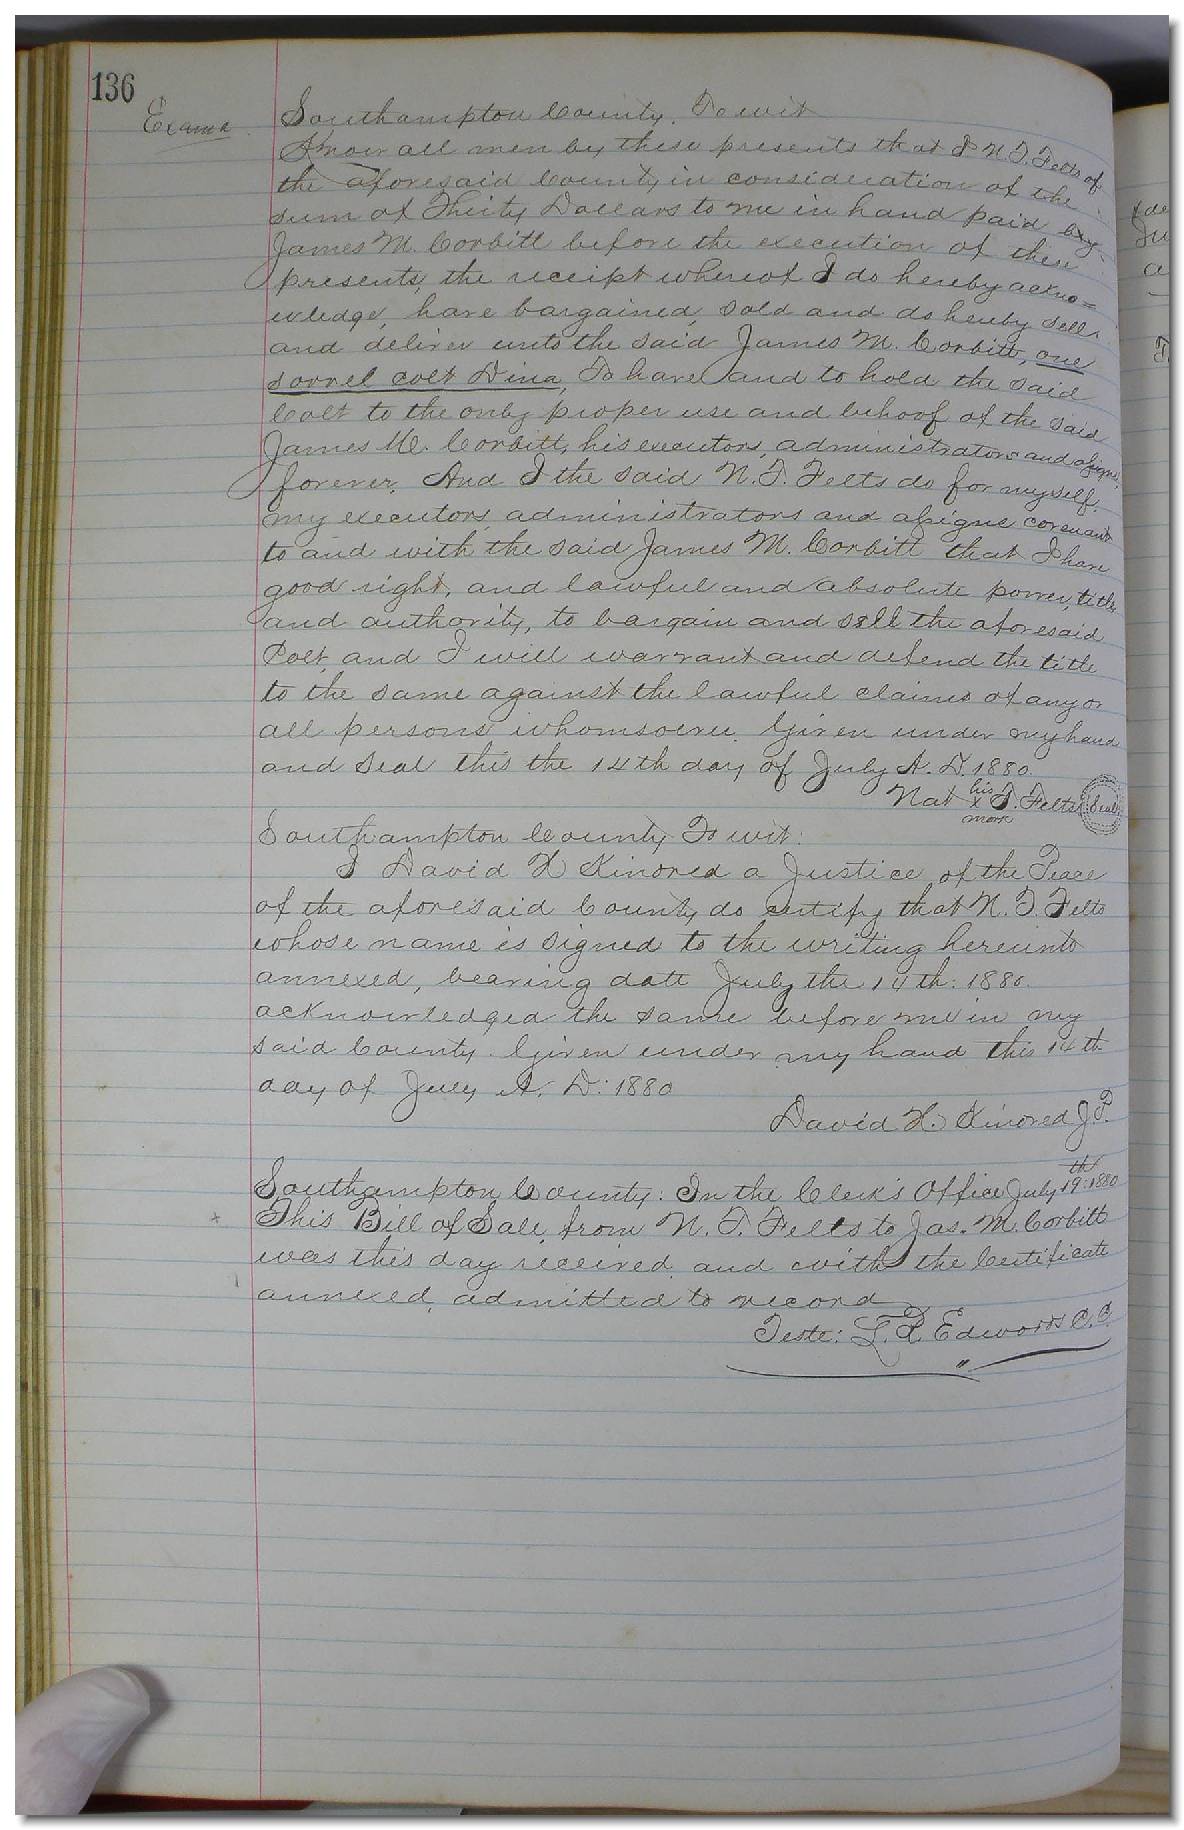 136
Examd
Southampton County. To wit
Know all men by these presents that I N. T. Felts of
the aforesaid County, in consideration of the
sum of Thirty Dollars to me in hand paid by
James M. Corbitt before the execution of these
presents, the receipt whereof I do hereby ackno=
wledge, have bargained, sold and do hereby sell
and deliver unto the said James M. Corbitt, one
sorrel colt Dina, To have and to hold the said
Colt to the only proper use and behoof of the said
James M. Corbitt, his executors, administrators and assigns,
forever. And I the said N. T. Felts do for myself,
my executors, administrators and assigns covenant
to and with the said James M. Corbitt that I have
good right, and lawful and absolute power, title
and authority, to bargain and sell the aforesaid
Colt, and I will warrant and defend the title
to the same against the lawful claims of any or
all persons whomsoever. Given under my hand
and seal this the 14th day of July A. D. 1880.
his
Nat x T. Felts Seal
mark
Southampton County, To wit:
I David H Kindred a Justice of the Peace
of the aforesaid County do certify that N. T. Felts
whose name is signed to the writing hereunto
annexed, bearing date July the 14th: 1880.
acknowledged the same before me in my
said County. Given under my hand this 14th
day of July A. D: 1880
David H. Kindred J. P.
Southampton County: In the Clerk's Office July 19th: 1880
This Bill of Sale, from N. T. Felts to Jas. M. Corbitt
was this day received and with the Certificate
annexed, admitted to record
Teste: L. R. Edwards C. C.